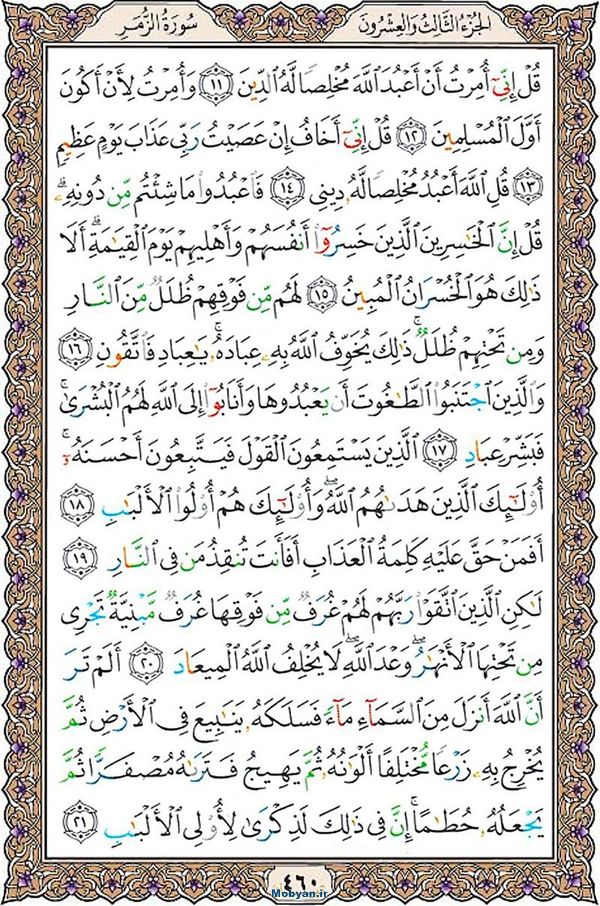 سُورَةُ الزُّمَرِ
الجُزءُ الثَّالِثُ وَالعِشرُونَ
قُلْ إِنِّىٓ أُمِرْتُ أَنْ أَعْبُدَ ٱللَّهَ مُخْلِصًا لَّهُ ٱلدِّينَ ١١ وَأُمِرْتُ لِأَنْ أَكُونَ
أَوَّلَ ٱلْمُسْلِمِينَ ١٢ قُلْ إِنِّىٓ أَخَافُ إِنْ عَصَيْتُ رَبِّى عَذَابَ يَوْمٍ عَظِيمٍ
١٣ قُلِ ٱللَّهَ أَعْبُدُ مُخْلِصًا لَّهُۥ دِينِى ١٤ فَٱعْبُدُوا۟ مَا شِئْتُم مِّن دُونِهِۦ ۗ
قُلْ إِنَّ ٱلْخَٰسِرِينَ ٱلَّذِينَ خَسِرُوٓا۟ أَنفُسَهُمْ وَأَهْلِيهِمْ يَوْمَ ٱلْقِيَٰمَةِ ۗ أَلَا
ذَٰلِكَ هُوَ ٱلْخُسْرَانُ ٱلْمُبِينُ ١٥ لَهُم مِّن فَوْقِهِمْ ظُلَلٌ مِّنَ ٱلنَّارِ
وَمِن تَحْتِهِمْ ظُلَلٌ ۚ ذَٰلِكَ يُخَوِّفُ ٱللَّهُ بِهِۦ عِبَادَهُۥ ۚ يَٰعِبَادِ فَٱتَّقُونِ ١٦
وَٱلَّذِينَ ٱجْتَنَبُوا۟ ٱلطَّٰغُوتَ أَن يَعْبُدُوهَا وَأَنَابُوٓا۟ إِلَى ٱللَّهِ لَهُمُ ٱلْبُشْرَىٰ ۚ
فَبَشِّرْ عِبَادِ ١٧ ٱلَّذِينَ يَسْتَمِعُونَ ٱلْقَوْلَ فَيَتَّبِعُونَ أَحْسَنَهُۥٓ ۚ
أُو۟لَٰٓئِكَ ٱلَّذِينَ هَدَىٰهُمُ ٱللَّهُ ۖ وَأُو۟لَٰٓئِكَ هُمْ أُو۟لُوا۟ ٱلْأَلْبَٰبِ ١٨
أَفَمَنْ حَقَّ عَلَيْهِ كَلِمَةُ ٱلْعَذَابِ أَفَأَنتَ تُنقِذُ مَن فِى ٱلنَّارِ ١٩
لَٰكِنِ ٱلَّذِينَ ٱتَّقَوْا۟ رَبَّهُمْ لَهُمْ غُرَفٌ مِّن فَوْقِهَا غُرَفٌ مَّبْنِيَّةٌ تَجْرِى
مِن تَحْتِهَا ٱلْأَنْهَٰرُ ۖ وَعْدَ ٱللَّهِ ۖ لَا يُخْلِفُ ٱللَّهُ ٱلْمِيعَادَ ٢٠ أَلَمْ تَرَ
أَنَّ ٱللَّهَ أَنزَلَ مِنَ ٱلسَّمَآءِ مَآءً فَسَلَكَهُۥ يَنَٰبِيعَ فِى ٱلْأَرْضِ ثُمَّ
يُخْرِجُ بِهِۦ زَرْعًا مُّخْتَلِفًا أَلْوَٰنُهُۥ ثُمَّ يَهِيجُ فَتَرَىٰهُ مُصْفَرًّا ثُمَّ
يَجْعَلُهُۥ حُطَٰمًا ۚ إِنَّ فِى ذَٰلِكَ لَذِكْرَىٰ لِأُو۟لِى ٱلْأَلْبَٰبِ ٢١
٤٦٠
Mobyan.ir